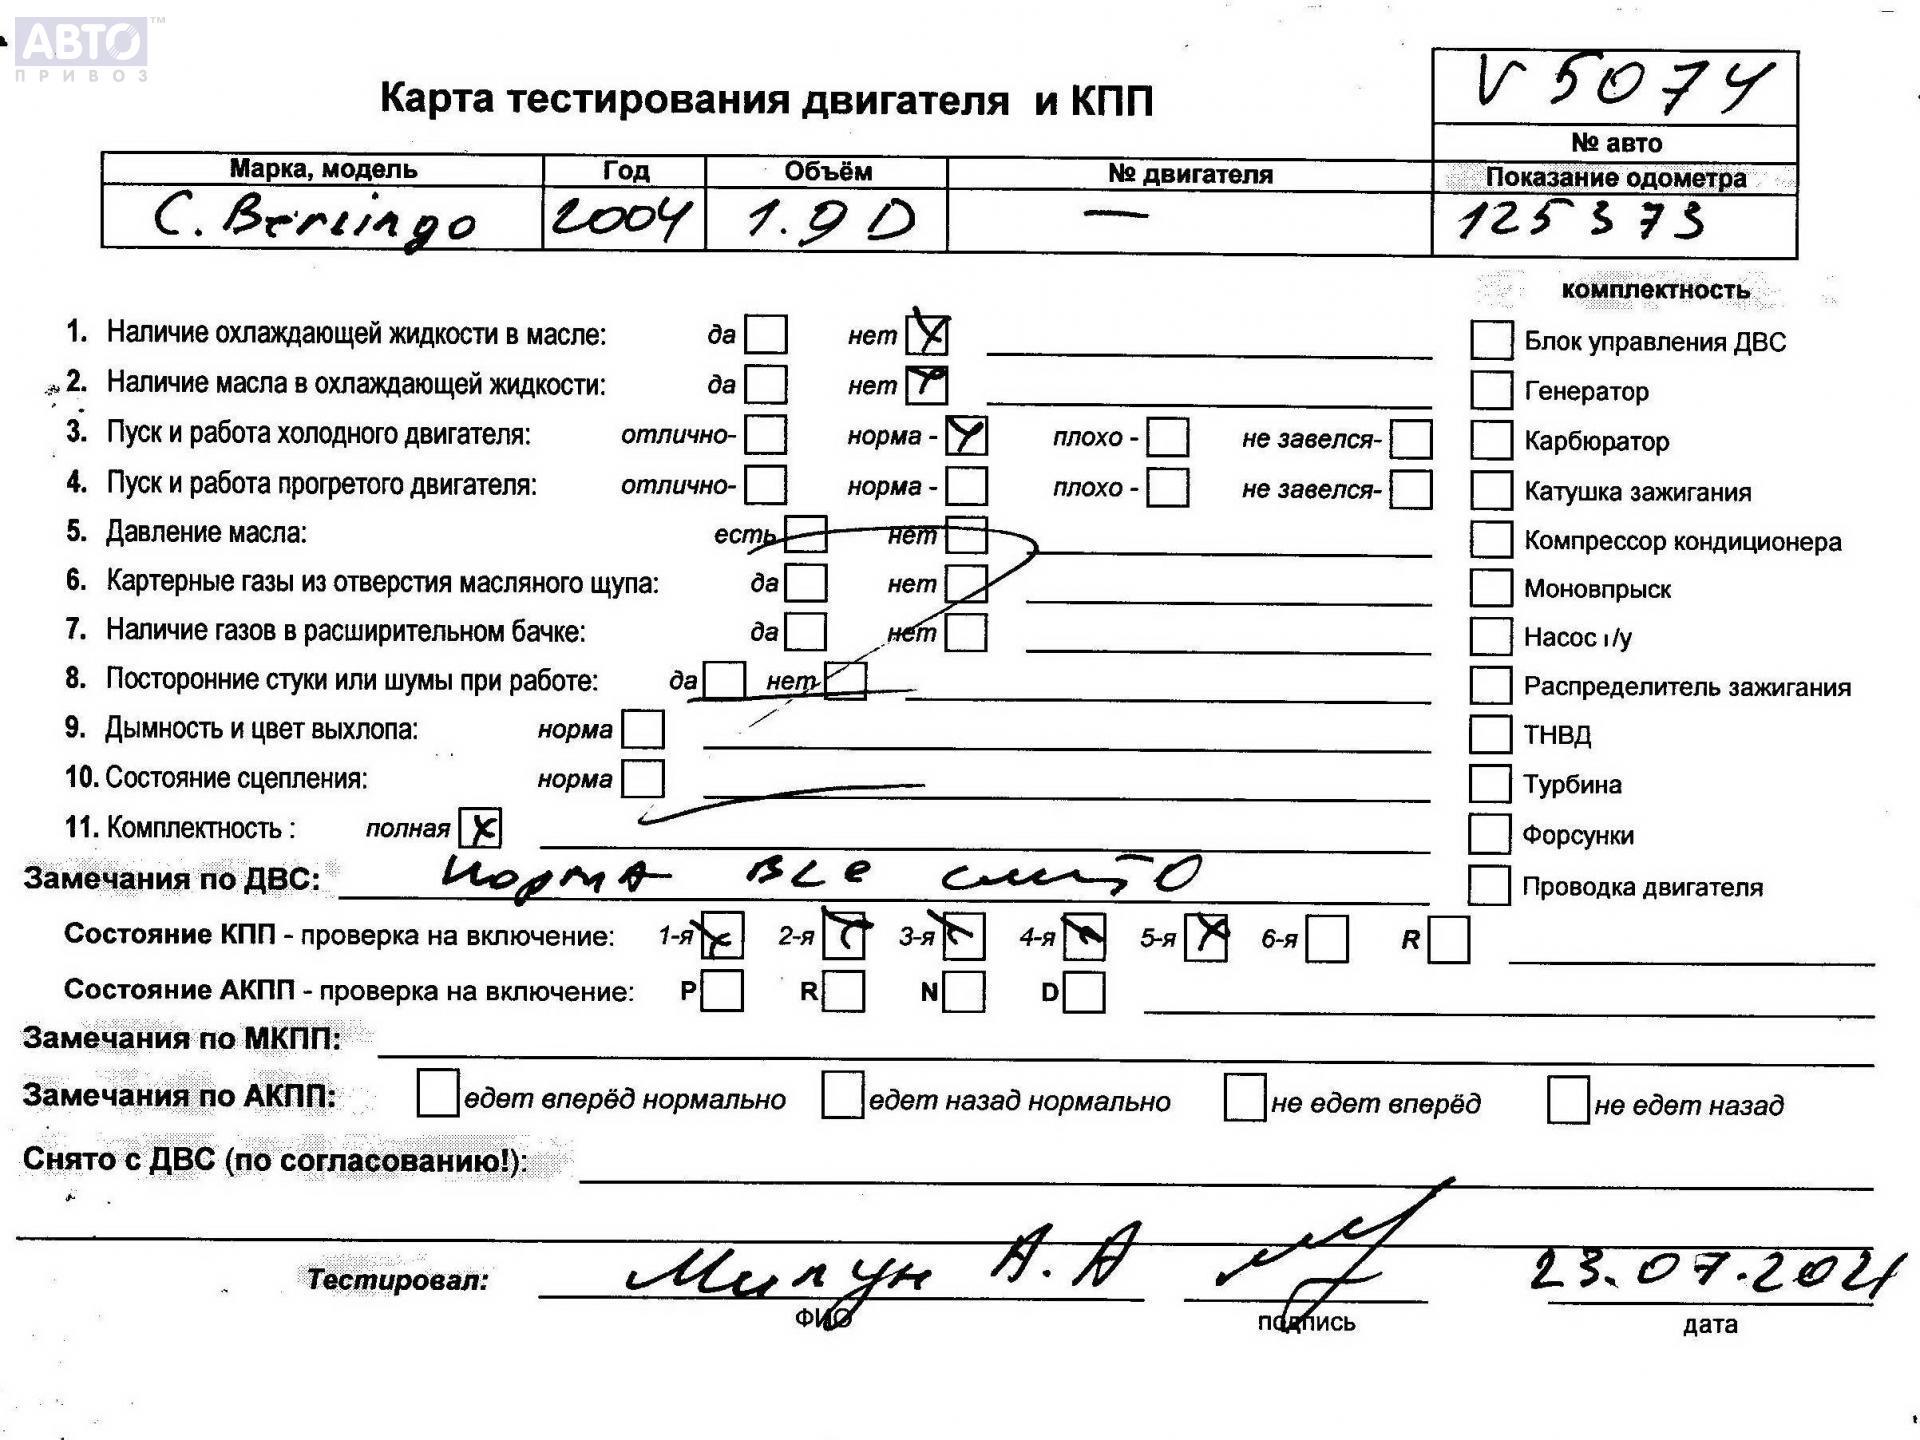 АВТО™
ПРИВОЗ
V 5074
Карта тестирования двигателя и КПП
№ авто
Марка, модель Год Объём № двигателя Показание одометра
C. Berlingo 2004 1.9 D — 125373
комплектность
1. Наличие охлаждающей жидкости в масле: да нет Блок управления ДВС
2. Наличие масла в охлаждающей жидкости: да нет Генератор
3. Пуск и работа холодного двигателя: отлично- норма - плохо - не завелся- Карбюратор
4. Пуск и работа прогретого двигателя: отлично- норма - плохо - не завелся- Катушка зажигания
5. Давление масла: есть нет Компрессор кондиционера
6. Картерные газы из отверстия масляного щупа: да нет Моновпрыск
7. Наличие газов в расширительном бачке: да нет Насос г/у
8. Посторонние стуки или шумы при работе: да нет Распределитель зажигания
9. Дымность и цвет выхлопа: норма ТНВД
10. Состояние сцепления: норма Турбина
11. Комплектность : полная Форсунки
Замечания по ДВС: норма все Проводка двигателя
Состояние КПП - проверка на включение: 1-я 2-я 3-я 4-я 5-я 6-я R
Состояние АКПП - проверка на включение: P R N D
Замечания по МКПП:
Замечания по АКПП: едет вперёд нормально едет назад нормально не едет вперёд не едет назад
Снято с ДВС (по согласованию!):
Тестировал: Милун А.А 23.07.2021
ФИО подпись дата